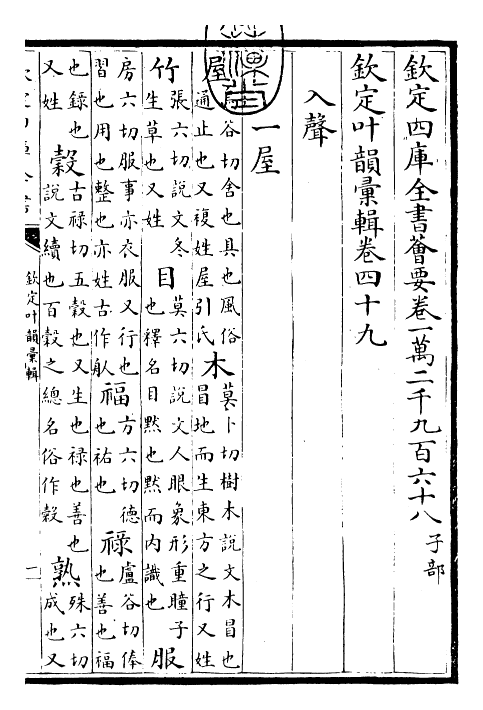 欽定四庫全書薈要卷一萬二千九百六十八 子部
欽定叶韻彙輯卷四十九
入聲
一屋
屋 谷切舍也具也風俗通止也又複姓屋引氏 木 莫卜切樹木說文木冒也冒地而生東方之行又姓
竹 張六切說文冬生草也又姓 目 莫六切說文人眼象形重瞳子也釋名目默也默而内識也 服
房六切服事亦衣服又行也習也用也整也亦姓古作𦨕 福 方六切德也祐也 祿 盧谷切俸也善也福
也錄也 穀 古祿切五穀也又生也祿也善也又姓說文續也百穀之總名俗作糓 熟 殊六切成也又
欽定叶韻彙輯
一